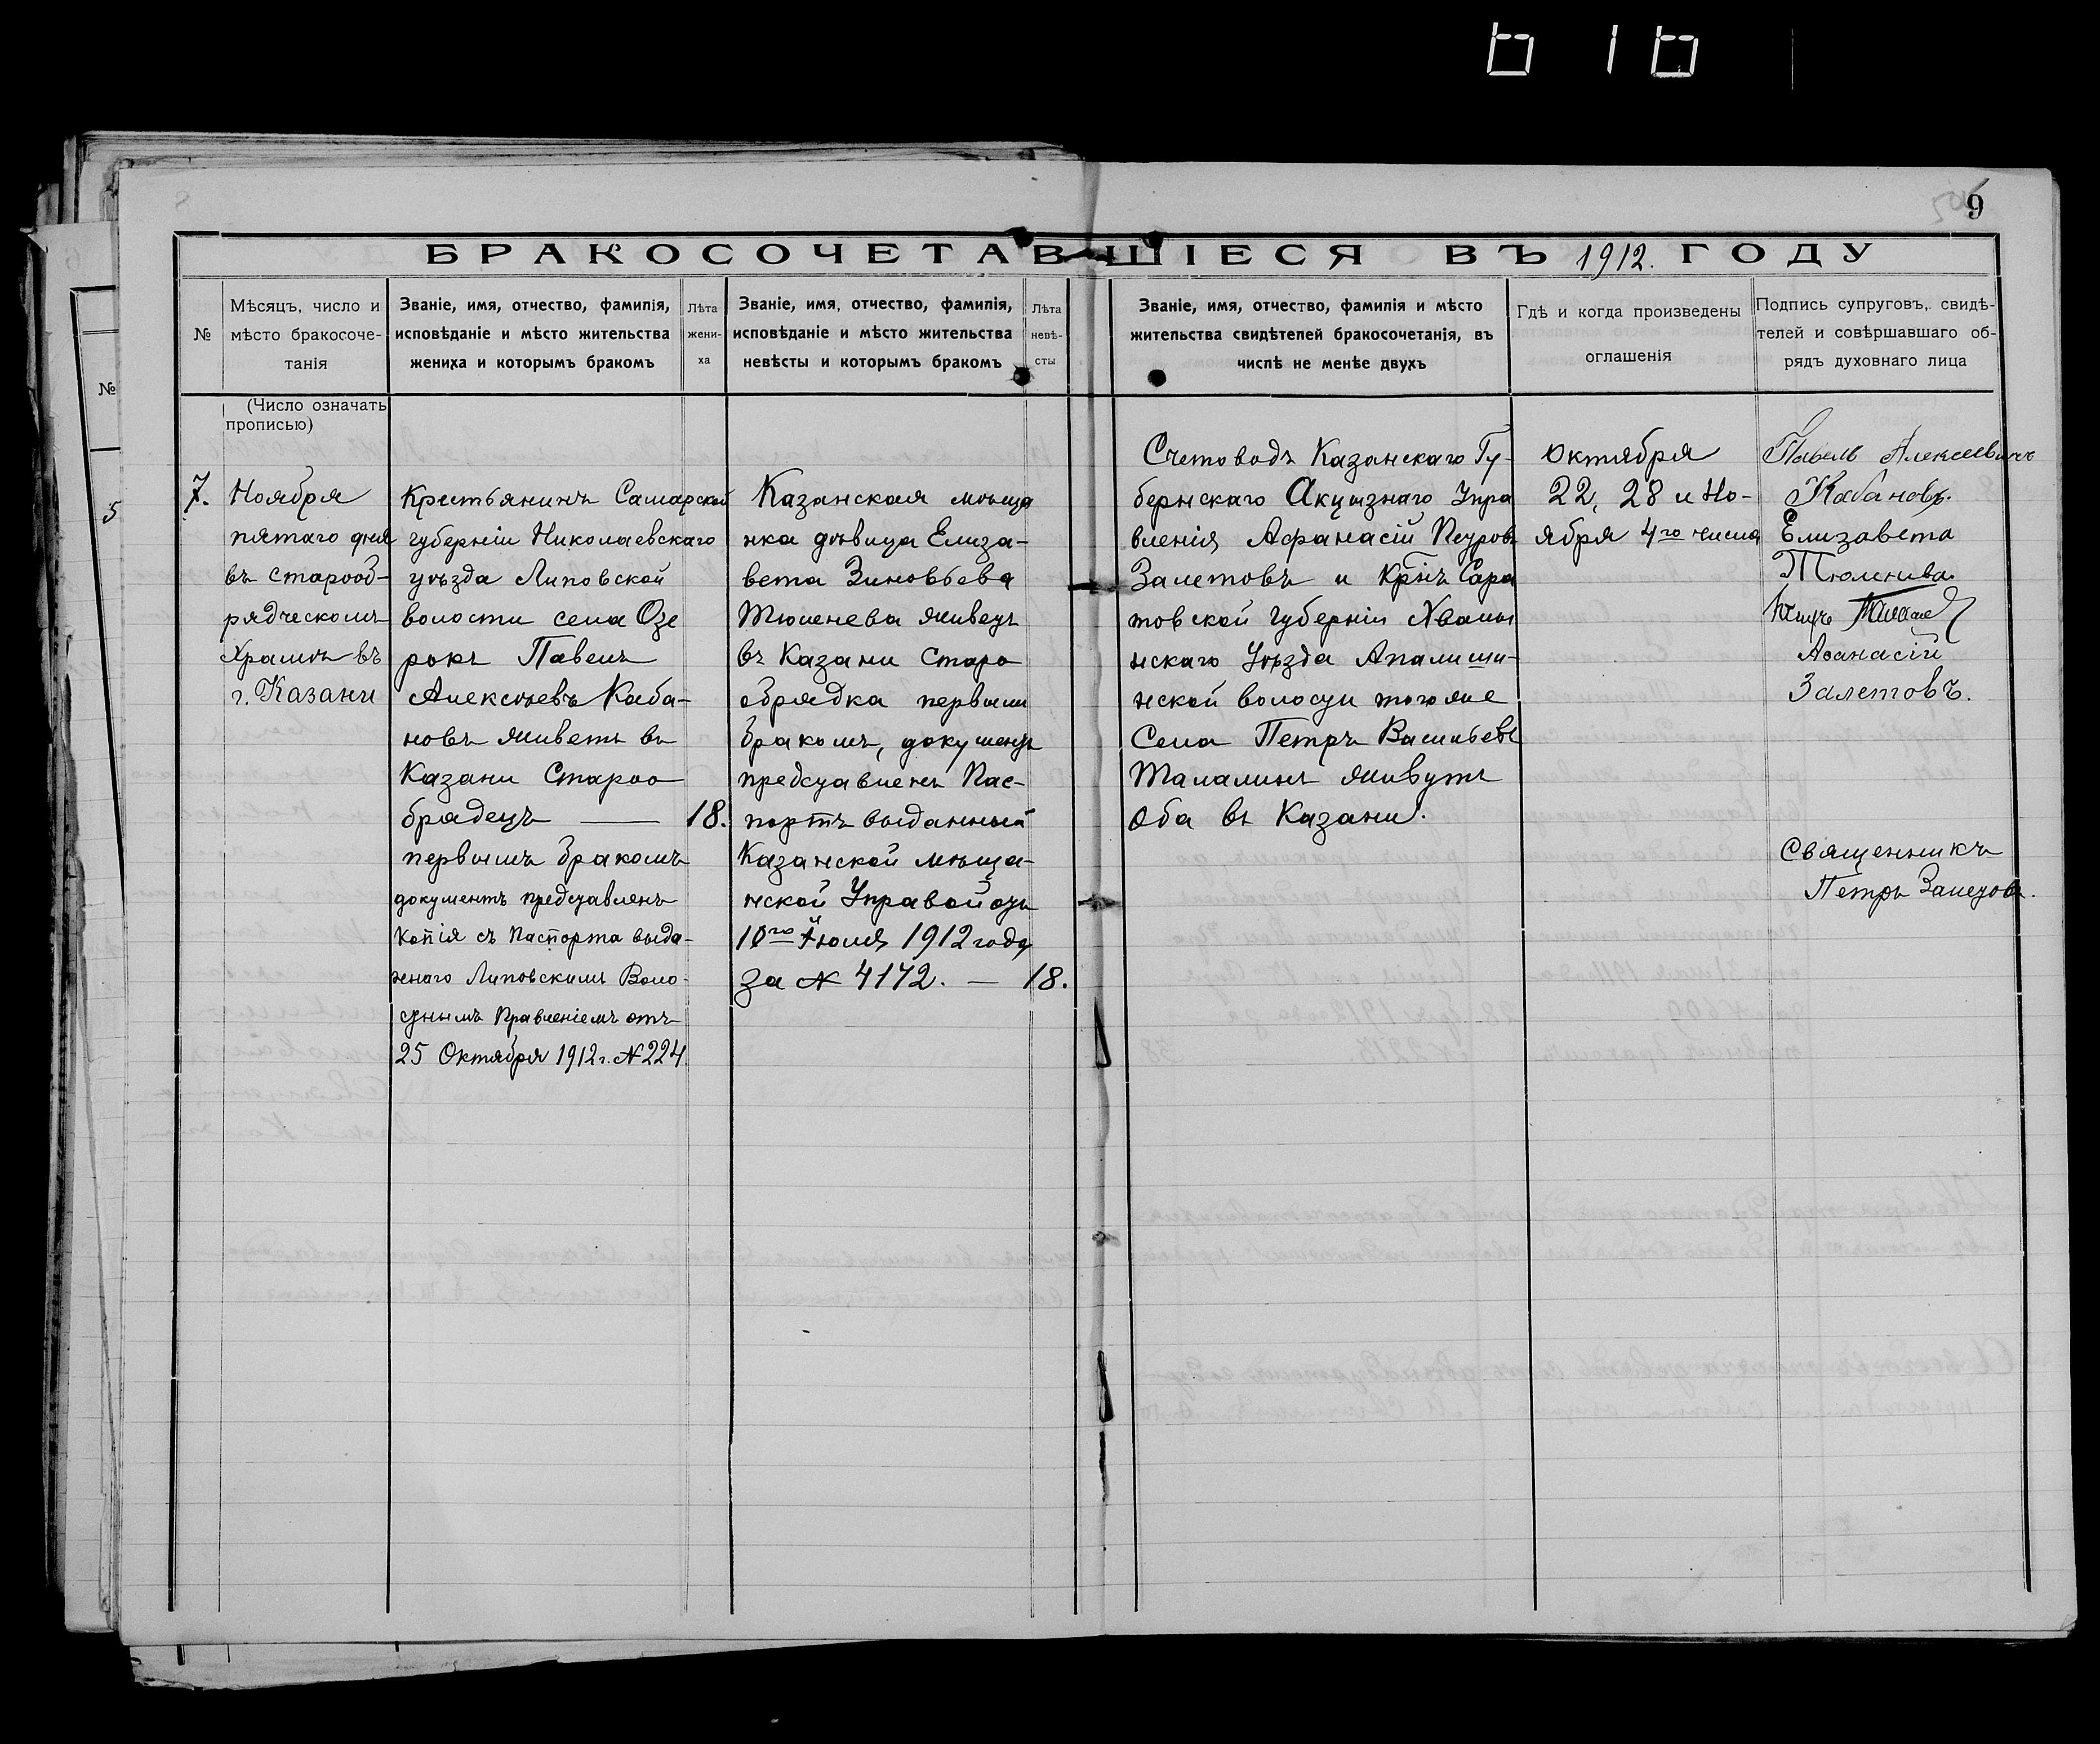 9
БРАКОСОЧЕТАВШІЕСЯ ВЪ 1912. ГОДУ
№
Мѣсяцъ, число и
мѣсто бракосоче-
танія
Званіе, имя, отчество, фамилія,
исповѣданіе и мѣсто жительства
жениха и которымъ бракомъ
Лѣта
жени-
ха
Званіе, имя, отчество, фамилія,
исповѣданіе и мѣсто жительства
невѣсты и которымъ бракомъ
Лѣта
невѣ-
сты
Званіе, имя, отчество, фамилія и мѣсто
жительства свидѣтелей бракосочетанія, въ
числѣ не менѣе двухъ
Гдѣ и когда произведены
оглашенія
Подпись супруговъ, свидѣ-
телей и совѣршавшаго об-
рядъ духовнаго лица
№
5
(Число означать
прописью)
7.
Ноября
пятаго дня
въ старооб-
рядческомъ
Храмѣ въ
г. Казани
Крестьянинъ Самарской
губерніи Николаевскаго
уѣзда Липовской
волости села Озе
рокъ Павелъ
Алексѣевъ Каба-
новъ живетъ въ
Казани Староо
брядецъ —
18.
первымъ бракомъ
документъ представленъ
Копія съ Паспорта выда-
ннаго Липовскимъ Воло-
стнымъ Правленіемъ отъ
25 Октября 1912 г. № 224.
Казанская мѣща
нка дѣвица Елиза-
вета Зиновьева
Тюленева живетъ
въ Казани Старо
обрядка первымъ
бракомъ, документъ
представленъ Пас-
портъ выданный
Казанской мѣща-
нской Управой отъ
10го Іюля 1912 года
за № 4172. —
18.
Счетоводъ Казанскаго Гу-
бернскаго Акцызнаго Упра
вленія Афанасій Петровъ
Залетовъ и Крнъ Сара
товской губерніи Хвалы
нскаго Уѣзда Апалиши-
нской волости тогоже
Села Петръ Васильевъ
Маламинъ живутъ
Оба въ Казани.
Октября
22, 28 и Но-
ября 4го числа
Павелъ Алексеевичъ
Кабановъ.
Елизавета
Тюленива.
Аѳанасій
Залетовъ.
Священникъ
Петръ Залетовъ.